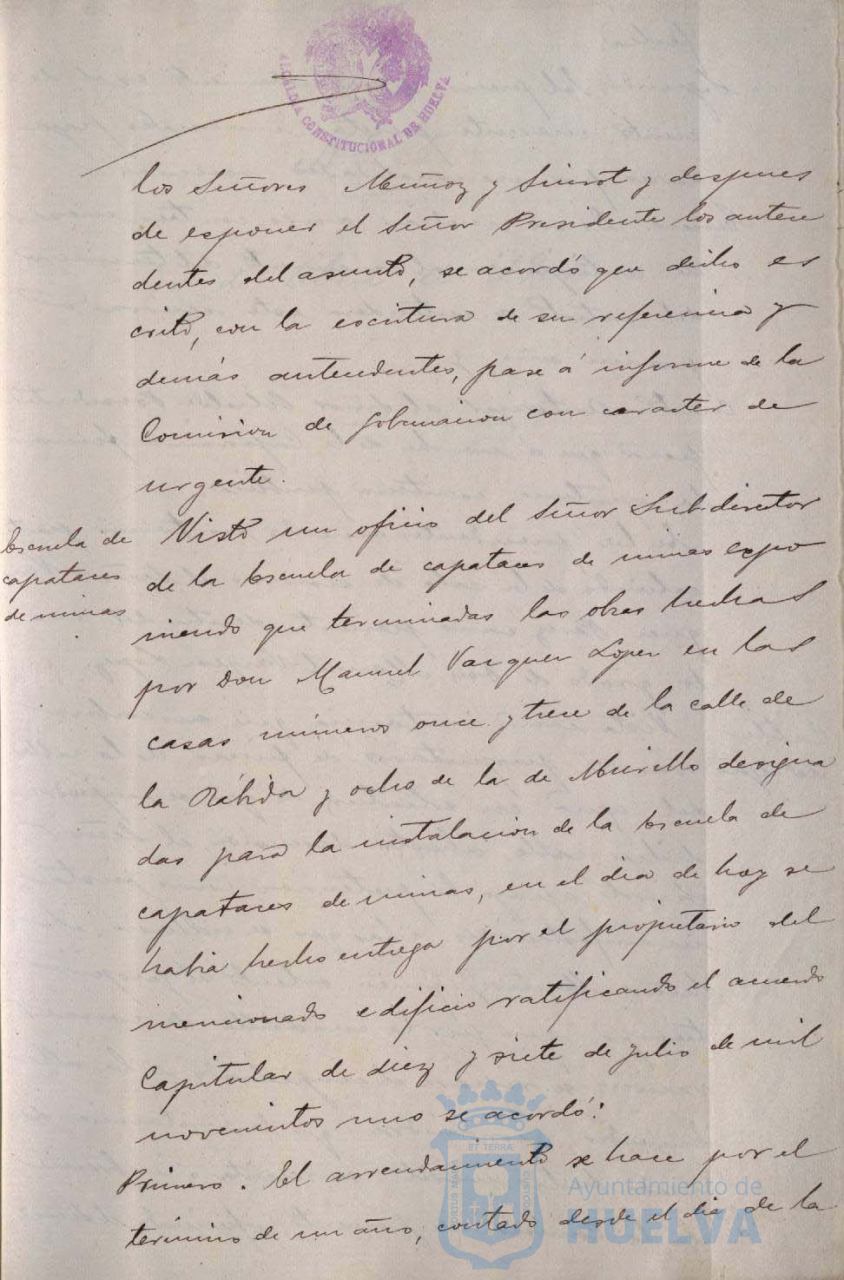 ALCALDIA CONSTITUCIONAL DE HUELVA
los Señores Muñoz y Siurot y despues
de esponer el Señor Presidente los antece
dentes del asunto, se acordó que dicho es
crito, con la escritura de su referencia y
demás antecedentes, pase á informe de la
Comision de Gobernacion con caracter de
urgente.
Escuela de
capataces
de minas
Visto un oficio del Señor Subdirector
de la Escuela de capataces de minas expo
niendo que terminadas las obras hechas
por Don Manuel Vazquez Lopez en las
casas números once y trece de la calle de
la Rábida y ocho de la de Murillo designa
das para la instalacion de la Escuela de
capataces de minas, en el dia de hoy se
habia hecho entrega por el propietario del
mencionado edificio ratificando el acuerdo
Capitular de diez y siete de Julio de mil
novecientos uno se acordó:
Primero. El arrendamiento se hace por el
término de un año, contado desde el dia de la
Ayuntamiento de
HUELVA